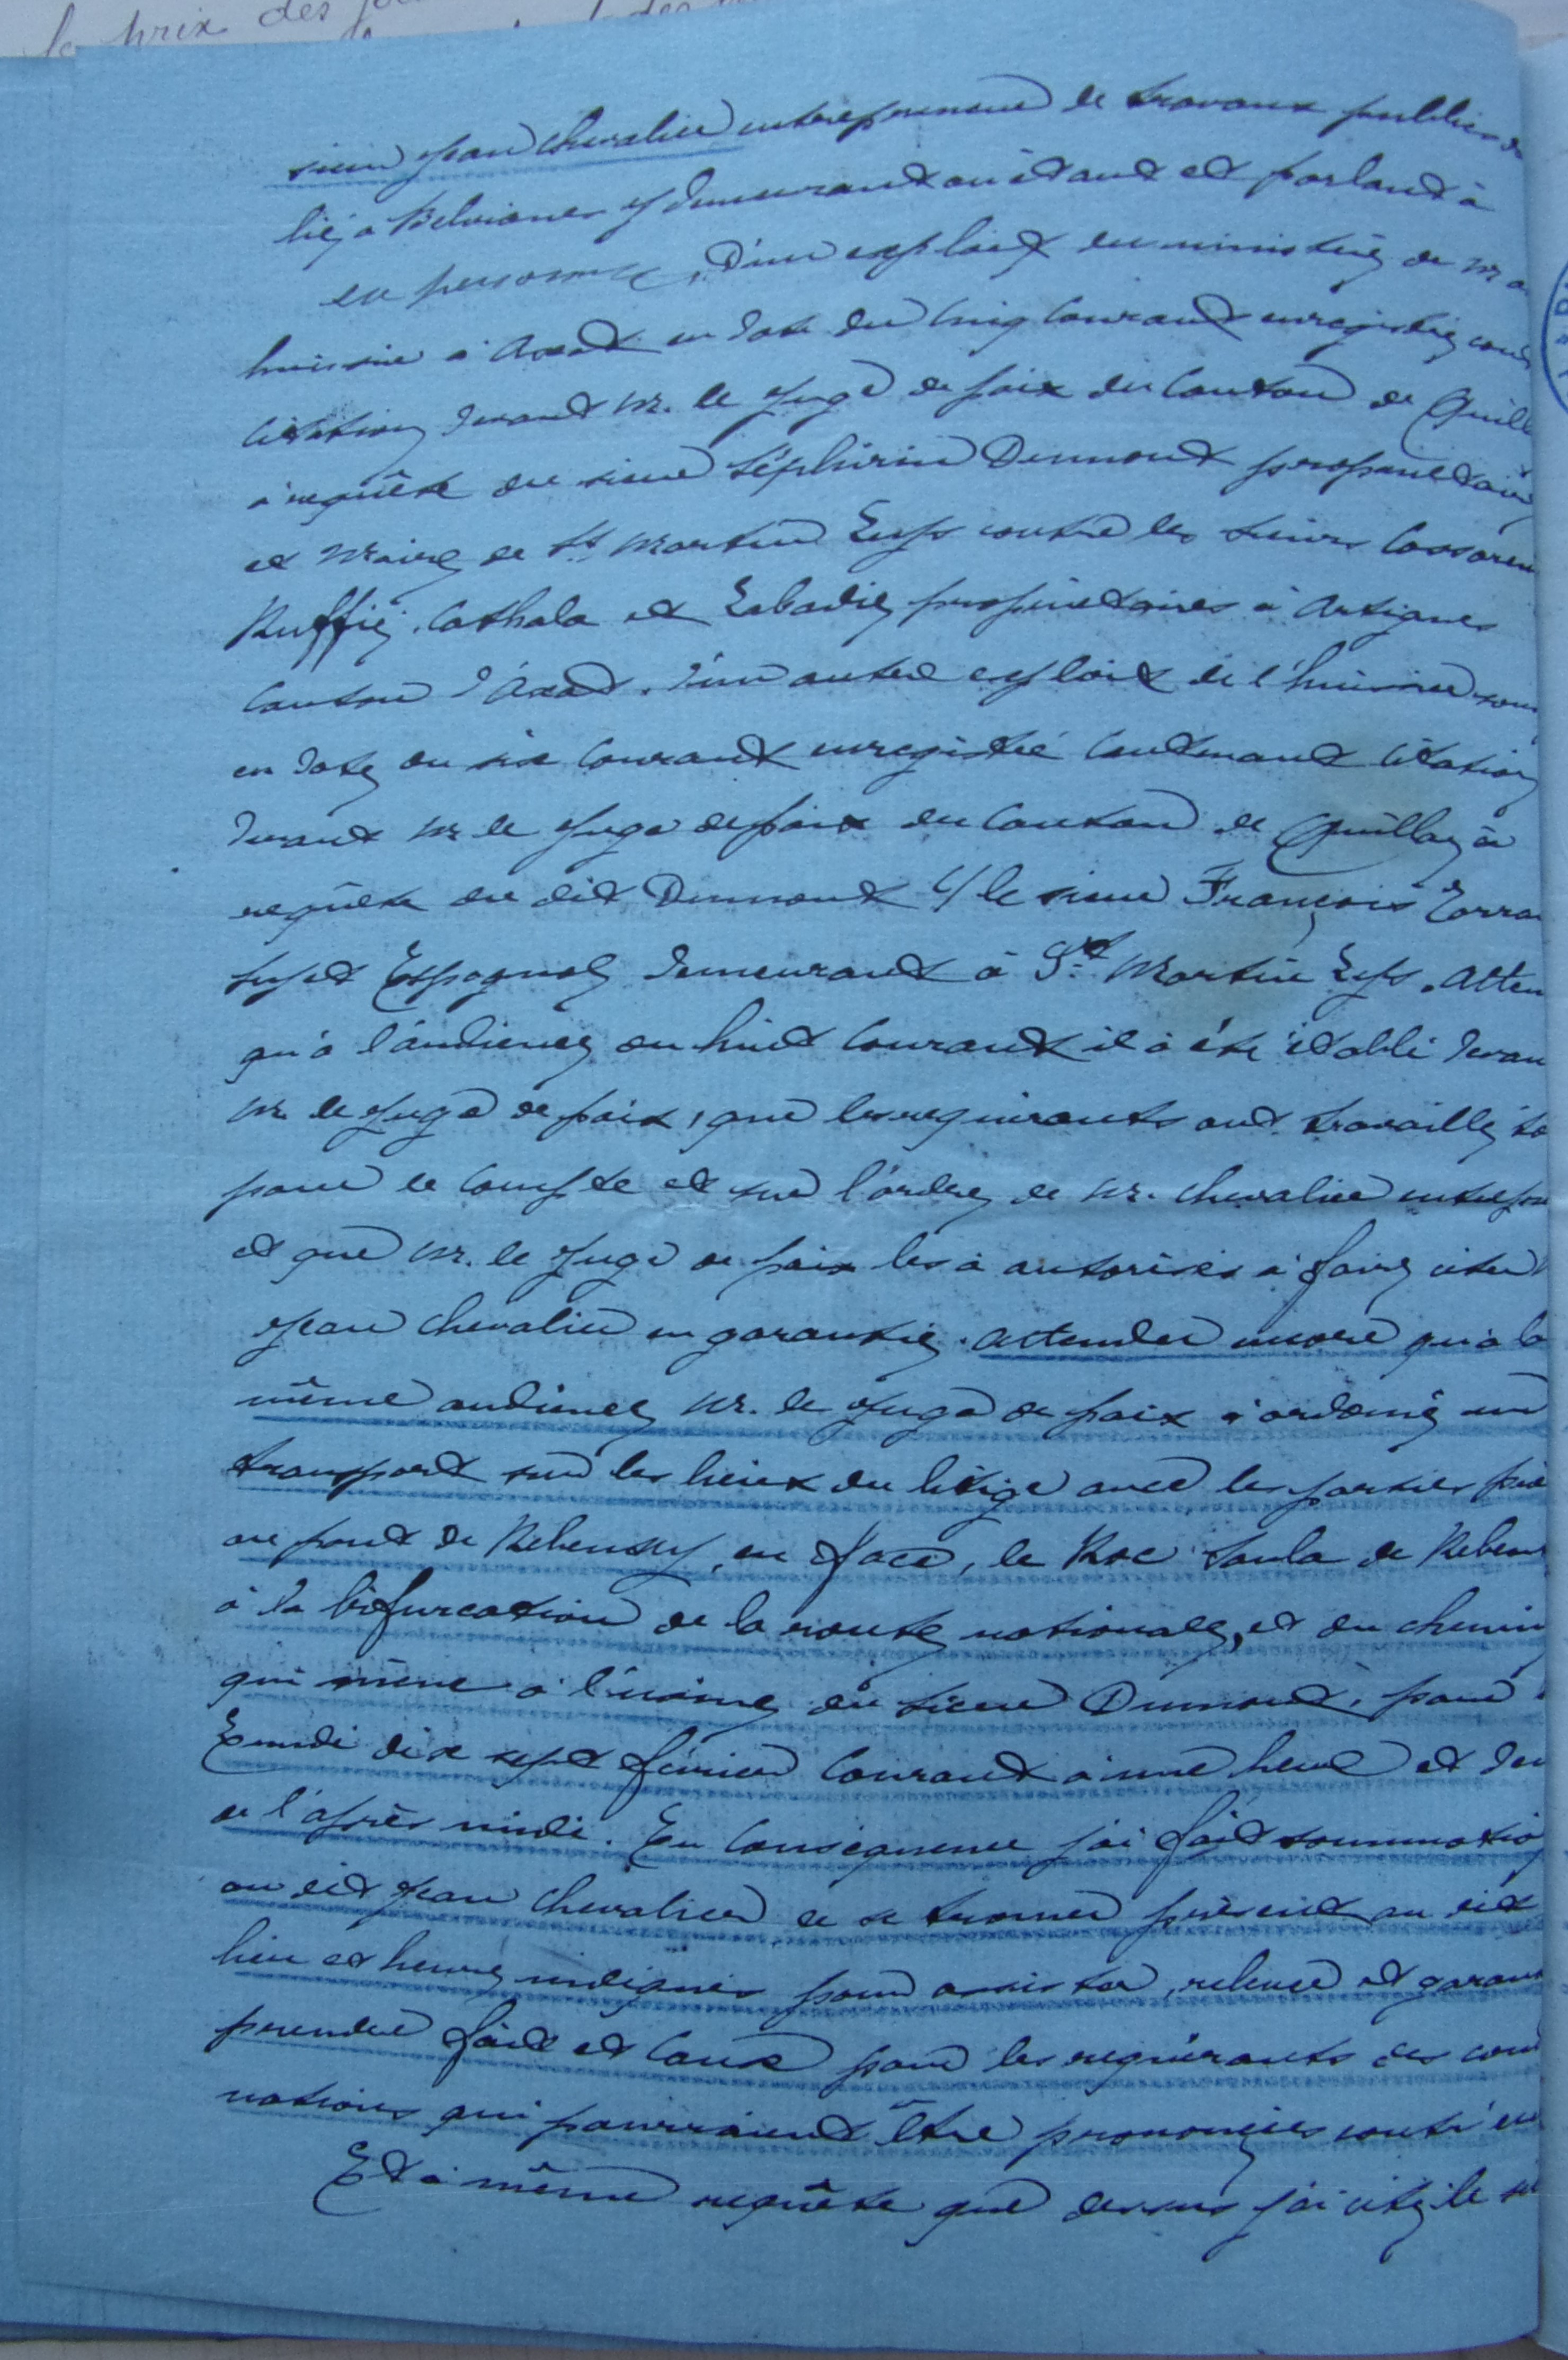 le prix des
sieur jean Chevalier entrepreneur de travaux publics
à Belvianes y demeurant où étant et parlant à
en personne, D'un exploit du ministère de Mr
huissier à Axat en date du cinq Courant enregistré
citation devant Mr. le juge de paix du Canton de Quill
à requête du sieur Séphirin Dumont propriétaire
et Maire de St Martin Lys contre les sieurs
Ruffié, Cathala et Labadie propriétaires à Artigues
Canton d'Axat. d'un autre exploit de l'huissier
en date du six Courant enregistré Contenant Citation
devant Mr le juge de paix du Canton de Quillan à
requête du dit Dumont C/ le sieur François
sujet Espagnol demeurant à St Martin Lys. Atten
qu'à l'audience du huit Courant il a été établi devan
Mr le juge de paix, que les requérants ont travaillé
pour le Compte et sur l'ordre de Mr. Chevalier entrepre
et que Mr. le juge de paix les a autorisés à faire citer
jean Chevalier en garantie. Attendu encore qu'à la
même audience Mr. le juge de paix a ordonné un
transport sur les lieux du litige avec les parties
au pont de Rebenty, en face, le Roc Taula de Reben
à la bifurcation de la route nationale, et du chemin
qui mène à l'usine du sieur Dumont, pour
Lundi dix sept février Courant à une heure et
de l'après midi. En Conséquence j'ai fait sommatio
au dit jean Chevalier de se trouver présent au dit
lieu et heure indiqués pour assister, relever et garan
prendre fait et Cause pour les requérants des con
nations qui pourraient être prononcées contr'eu
Et à même requête que dessus j'ai cité le